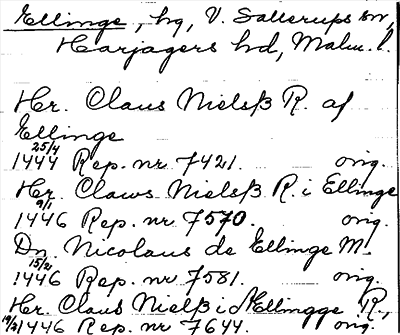 Ellinge, hg, V. Sallerups sn,
Harjagers hd, Malm. l.
Hr. Claus Nielsß R. af
Ellinge
25/4
1444 Rep. nr 7421. orig.
Hr. Claws Nielsß R. i Ellinge
9/1
1446 Rep. nr 7570. orig.
Dn. Nicolaus de Ellinge M.
15/2
1446 Rep. nr 7581. orig.
Hr. Claus Nielß i Ellingge R,
19/21446 Rep. nr 7644. orig.